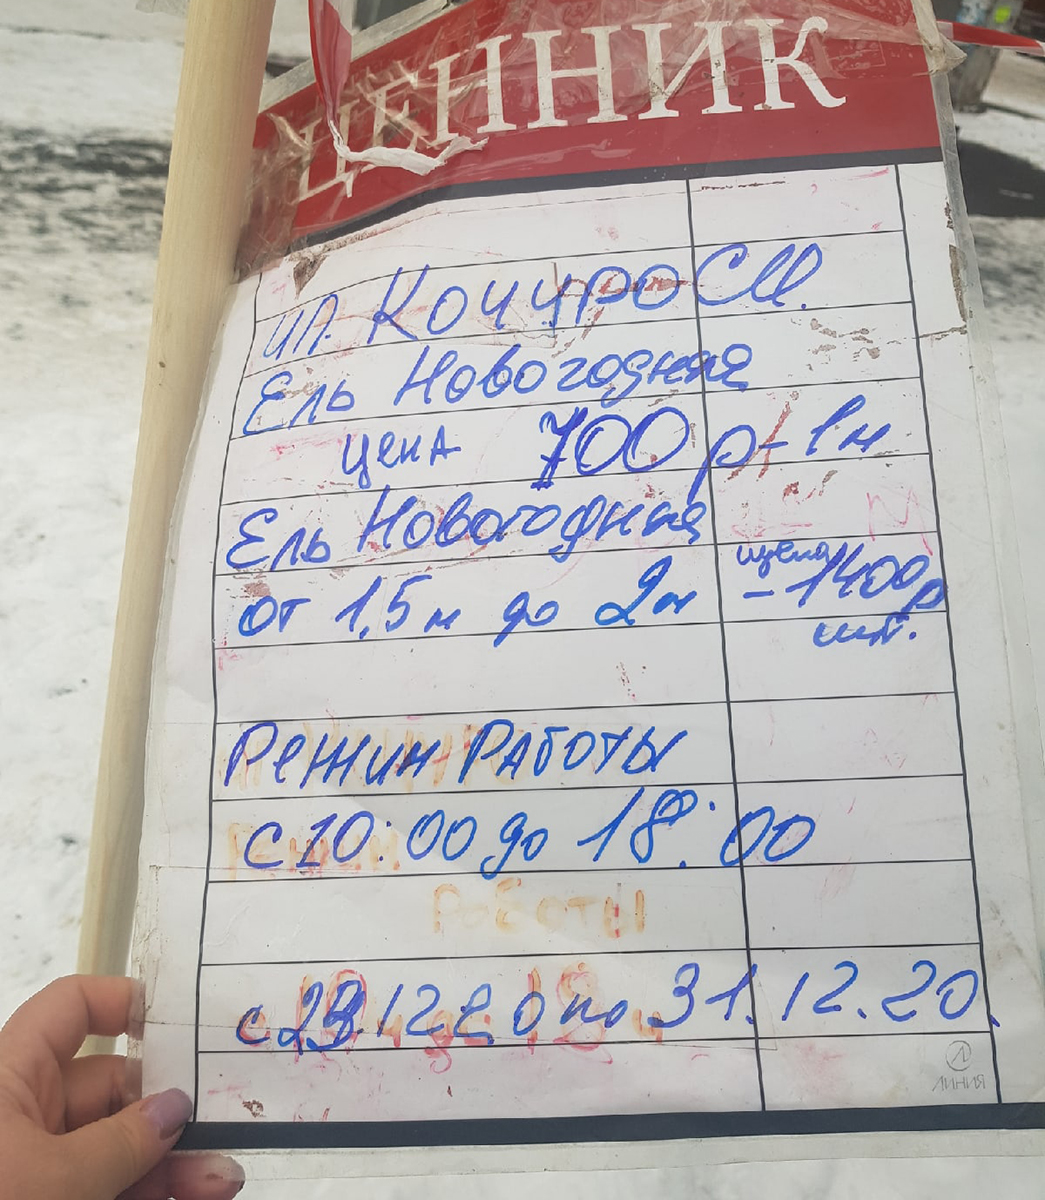 ЦЕННИК
ип. Кочуро С.М.
Ель Новогодняя
цена 700 р - 1м
Ель Новогодняя
от 1,5м до 2м цена - 1400р
шт.
Режим Работы
с 10:00 до 18:00
Режим
работы
с 23.12.20 по 31.12.20.
ЛИНИЯ